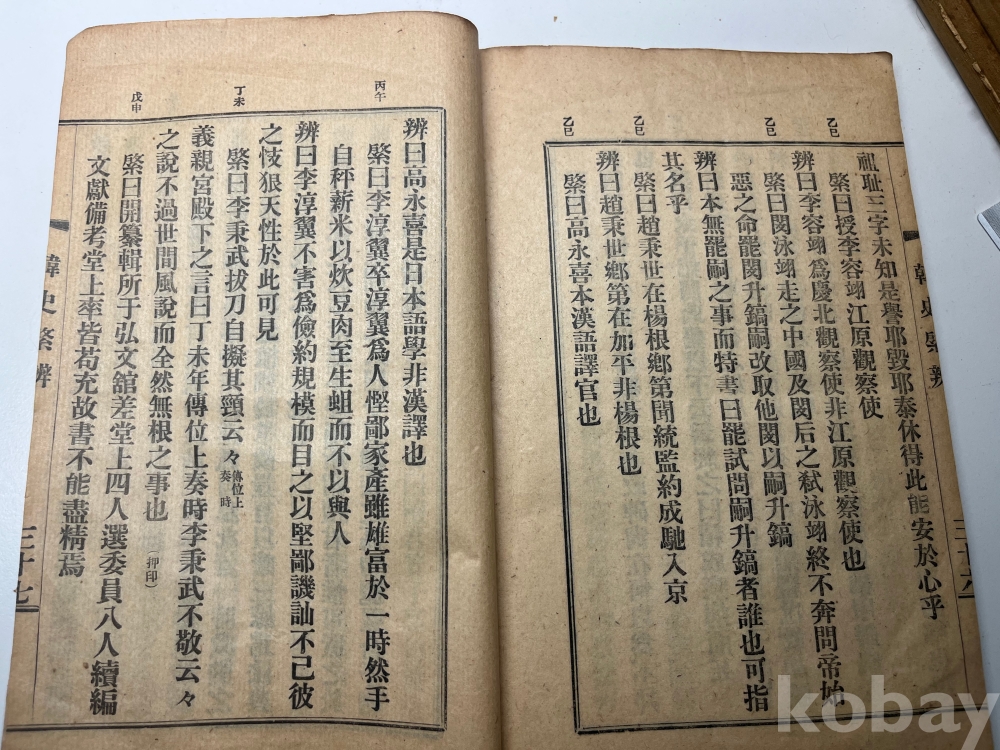 韓史綮辨
三十六
祖耻三字未知是譽耶毀耶泰休得此能安於心乎
乙巳
綮曰授李容翊江原觀察使
辨曰李容翊爲慶北觀察使非江原觀察使也
乙巳
綮曰閔泳翊走之中國及閔后之弑泳翊終不奔問帝始
惡之命罷閔升鎬嗣改取他閔以嗣升鎬
辨曰本無罷嗣之事而特書曰罷試問嗣升鎬者誰也可指
其名乎
乙巳
綮曰趙秉世在楊根鄉第聞統監約成馳入京
辨曰趙秉世鄉第在加平非楊根也
乙巳
綮曰高永喜本漢語譯官也
辨曰高永喜是日本語學非漢譯也
丙午
綮曰李淳翼卒淳翼爲人慳鄙家產雖雄富於一時然手
自秤薪米以炊豆肉至生蛆而不以與人
辨曰李淳翼不害爲儉約規模而目之以堅鄙譏訕不已彼
之忮狠天性於此可見
丁未
綮曰李秉武拔刀自擬其頸云々傳位上奏時
義親宮殿下之言曰丁未年傳位上奏時李秉武不敬云々
之說不過世間風說而全然無根之事也(押印)
戊申
綮曰開纂輯所于弘文舘差堂上四人選委員八人續編
文獻備考堂上率皆苟充故書不能盡精焉
韓史綮辨
三十七
kobay